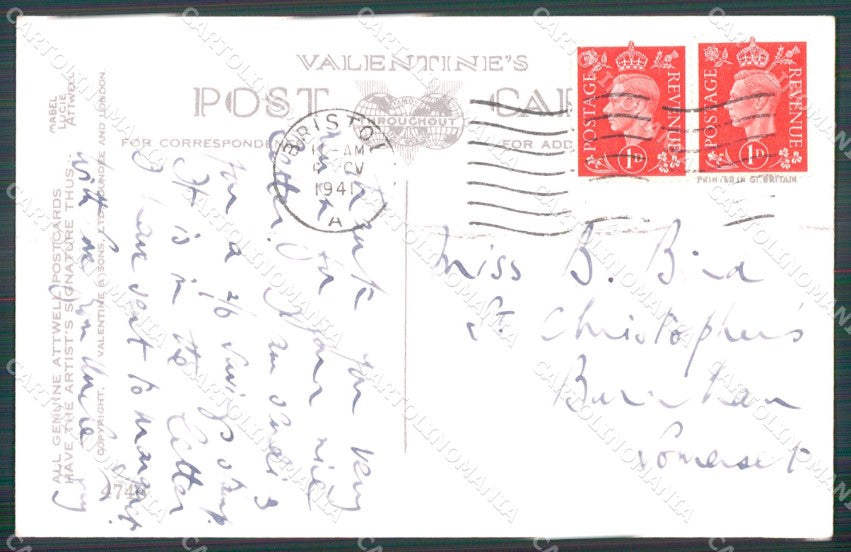 VALENTINE'S
POST CARD
THROUGHOUT
FOR CORRESPONDEN
FOR ADD
BRISTOL
AM
1941
A
POSTAGE REVENUE
1D
POSTAGE REVENUE
1D
PRINTED IN GT. BRITAIN
Thank you very
much for your nice
letter. I am sending
for a 2/6 Savings stamp.
It is in the letter
I have sent to Margaret
with love from Uncle
Miss B. Bird
St. Christopher's
Burnham
Somerset
MABEL
LUCIE
ATTWELL
ALL GENUINE ATTWELL POSTCARDS
HAVE THE ARTIST'S SIGNATURE THUS:-
COPYRIGHT. VALENTINE & SONS, LTD. DUNDEE AND LONDON.
474
CARTOLINOMANIA